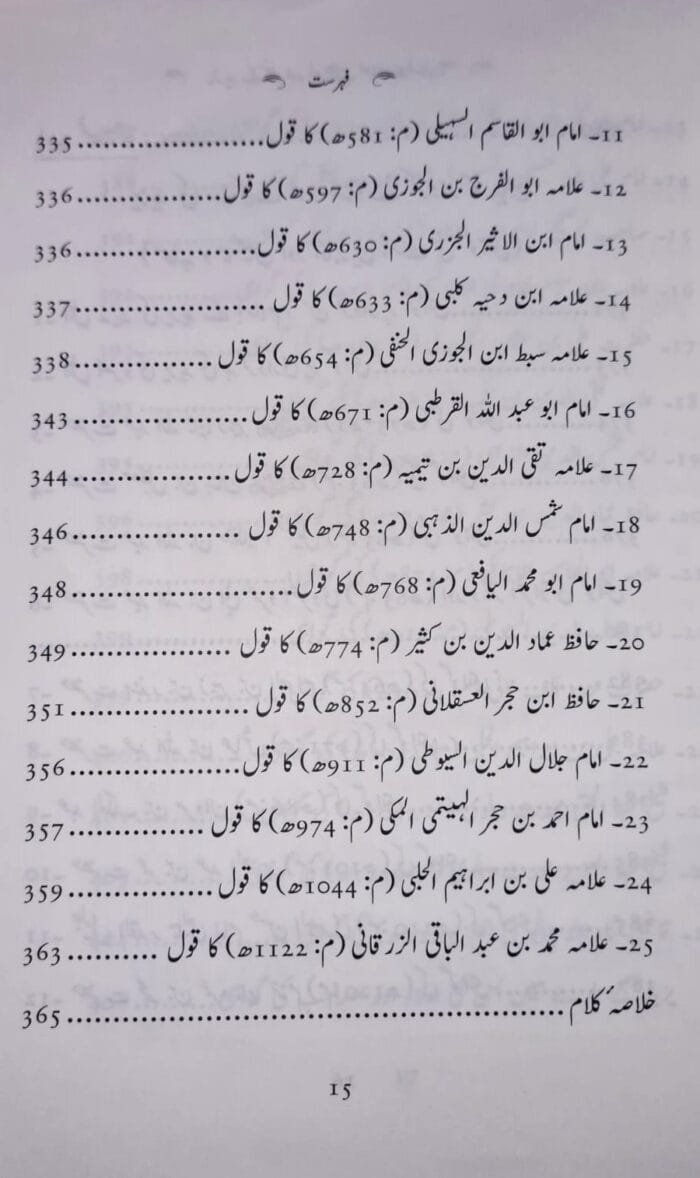 فہرست
11۔ امام ابو القاسم السہیلی (م: 581ھ) کا قول..................... 335
12۔ علامہ ابو الفرج بن الجوزی (م: 597ھ) کا قول.................. 336
13۔ امام ابن الاثیر الجزری (م: 630ھ) کا قول...................... 336
14۔ علامہ ابن دحیہ کلبی (م: 633ھ) کا قول ...................... 337
15۔ علامہ سبط ابن الجوزی الحنفی (م: 654ھ) کا قول ................ 338
16۔ امام ابو عبد اللہ القرطبی (م: 671ھ) کا قول..................... 343
17۔ علامہ تقی الدین بن تیمیہ (م: 728ھ) کا قول ................... 344
18۔ امام شمس الدین الذہبی (م: 748ھ) کا قول .................... 346
19۔ امام ابو محمد الیافعی (م: 768ھ) کا قول.......................... 348
20۔ حافظ عماد الدین بن کثیر (م: 774ھ) کا قول ................... 349
21۔ حافظ ابن حجر العسقلانی (م: 852ھ) کا قول .................... 351
22۔ امام جلال الدین السیوطی (م: 911ھ) کا قول.................... 356
23۔ امام احمد بن حجر الہیتمی المکی (م: 974ھ) کا قول ................ 357
24۔ علامہ علی بن ابراہیم الحلبی (م: 1044ھ) کا قول................. 359
25۔ علامہ محمد بن عبد الباقی الزرقانی (م: 1122ھ) کا قول ........... 363
خلاصۂ کلام ......................................................... 365
15